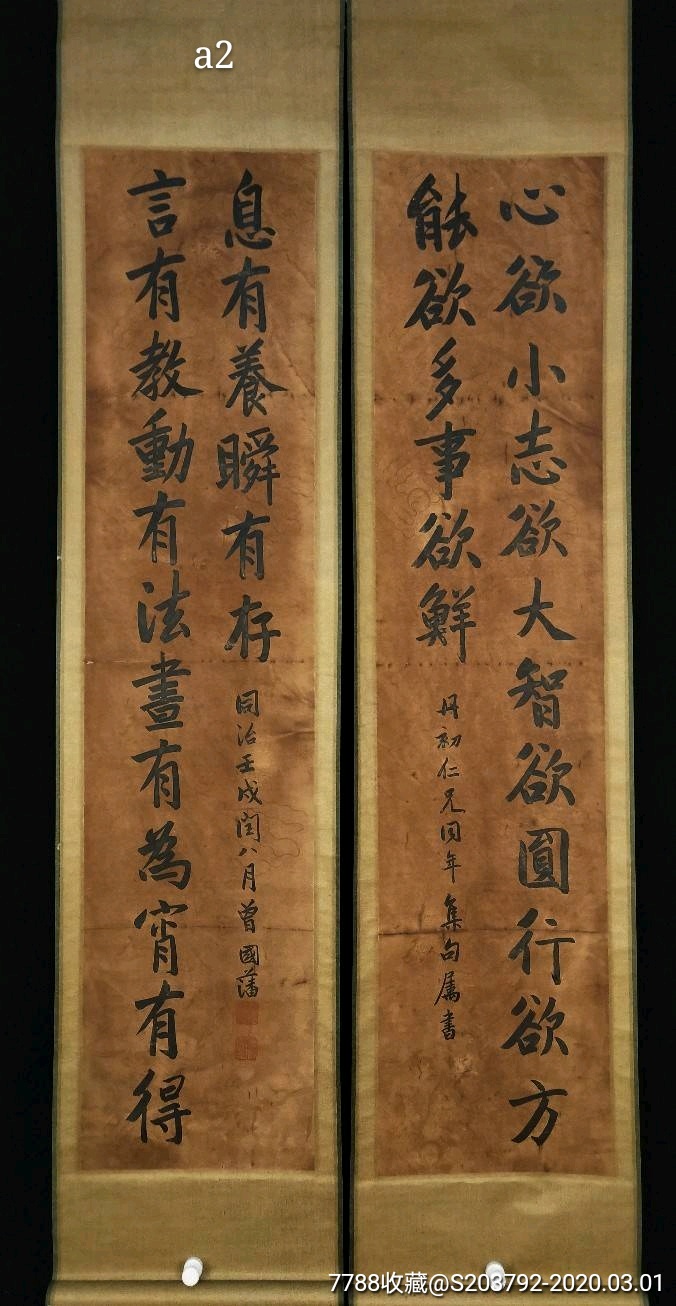 a2
心欲小志欲大智欲圓行欲方
能欲多事欲鮮
丹初仁兄同年集句属書
言有教動有法晝有為宵有得
息有養瞬有存
同治壬戌閏八月曾國藩
7788收藏@S203792-2020.03.01